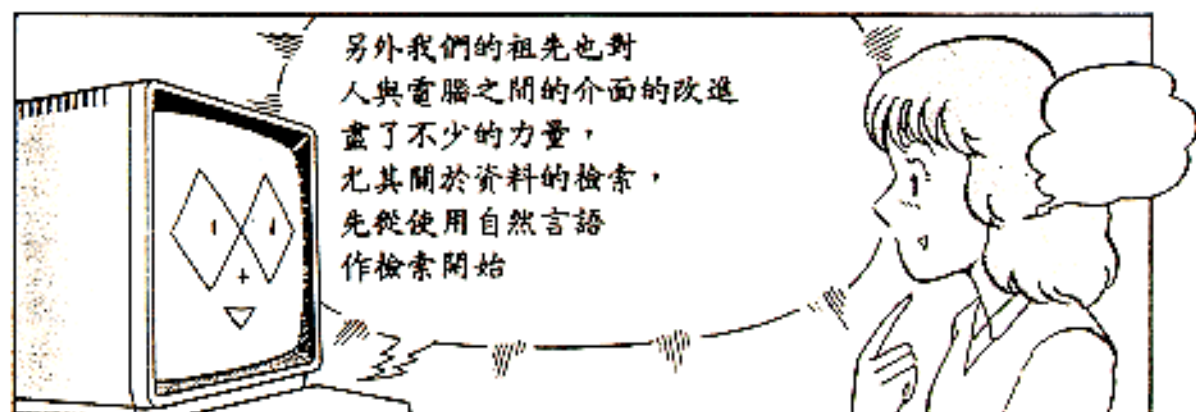 另外我們的祖先也對
人與電腦之間的介面的改進
盡了不少的力量，
尤其關於資料的檢索，
先從使用自然言語
作檢索開始